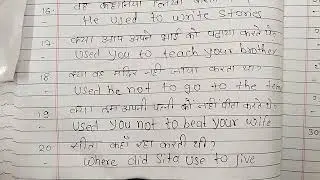 16. वह कहानियाँ लिखा करता था
He used to write stories
क्या आप अपने भाई को पढ़ाया करते थे?
used you to teach your brother
18 क्या वह मंदिर नहीं जाया करता था?
used he not to go to the
19 क्या तुम अपनी पत्नी को नहीं पीटा करते थे?
used you not to beat your wife
20 सीता कहाँ रहा करती थी?
where did Sita use to live